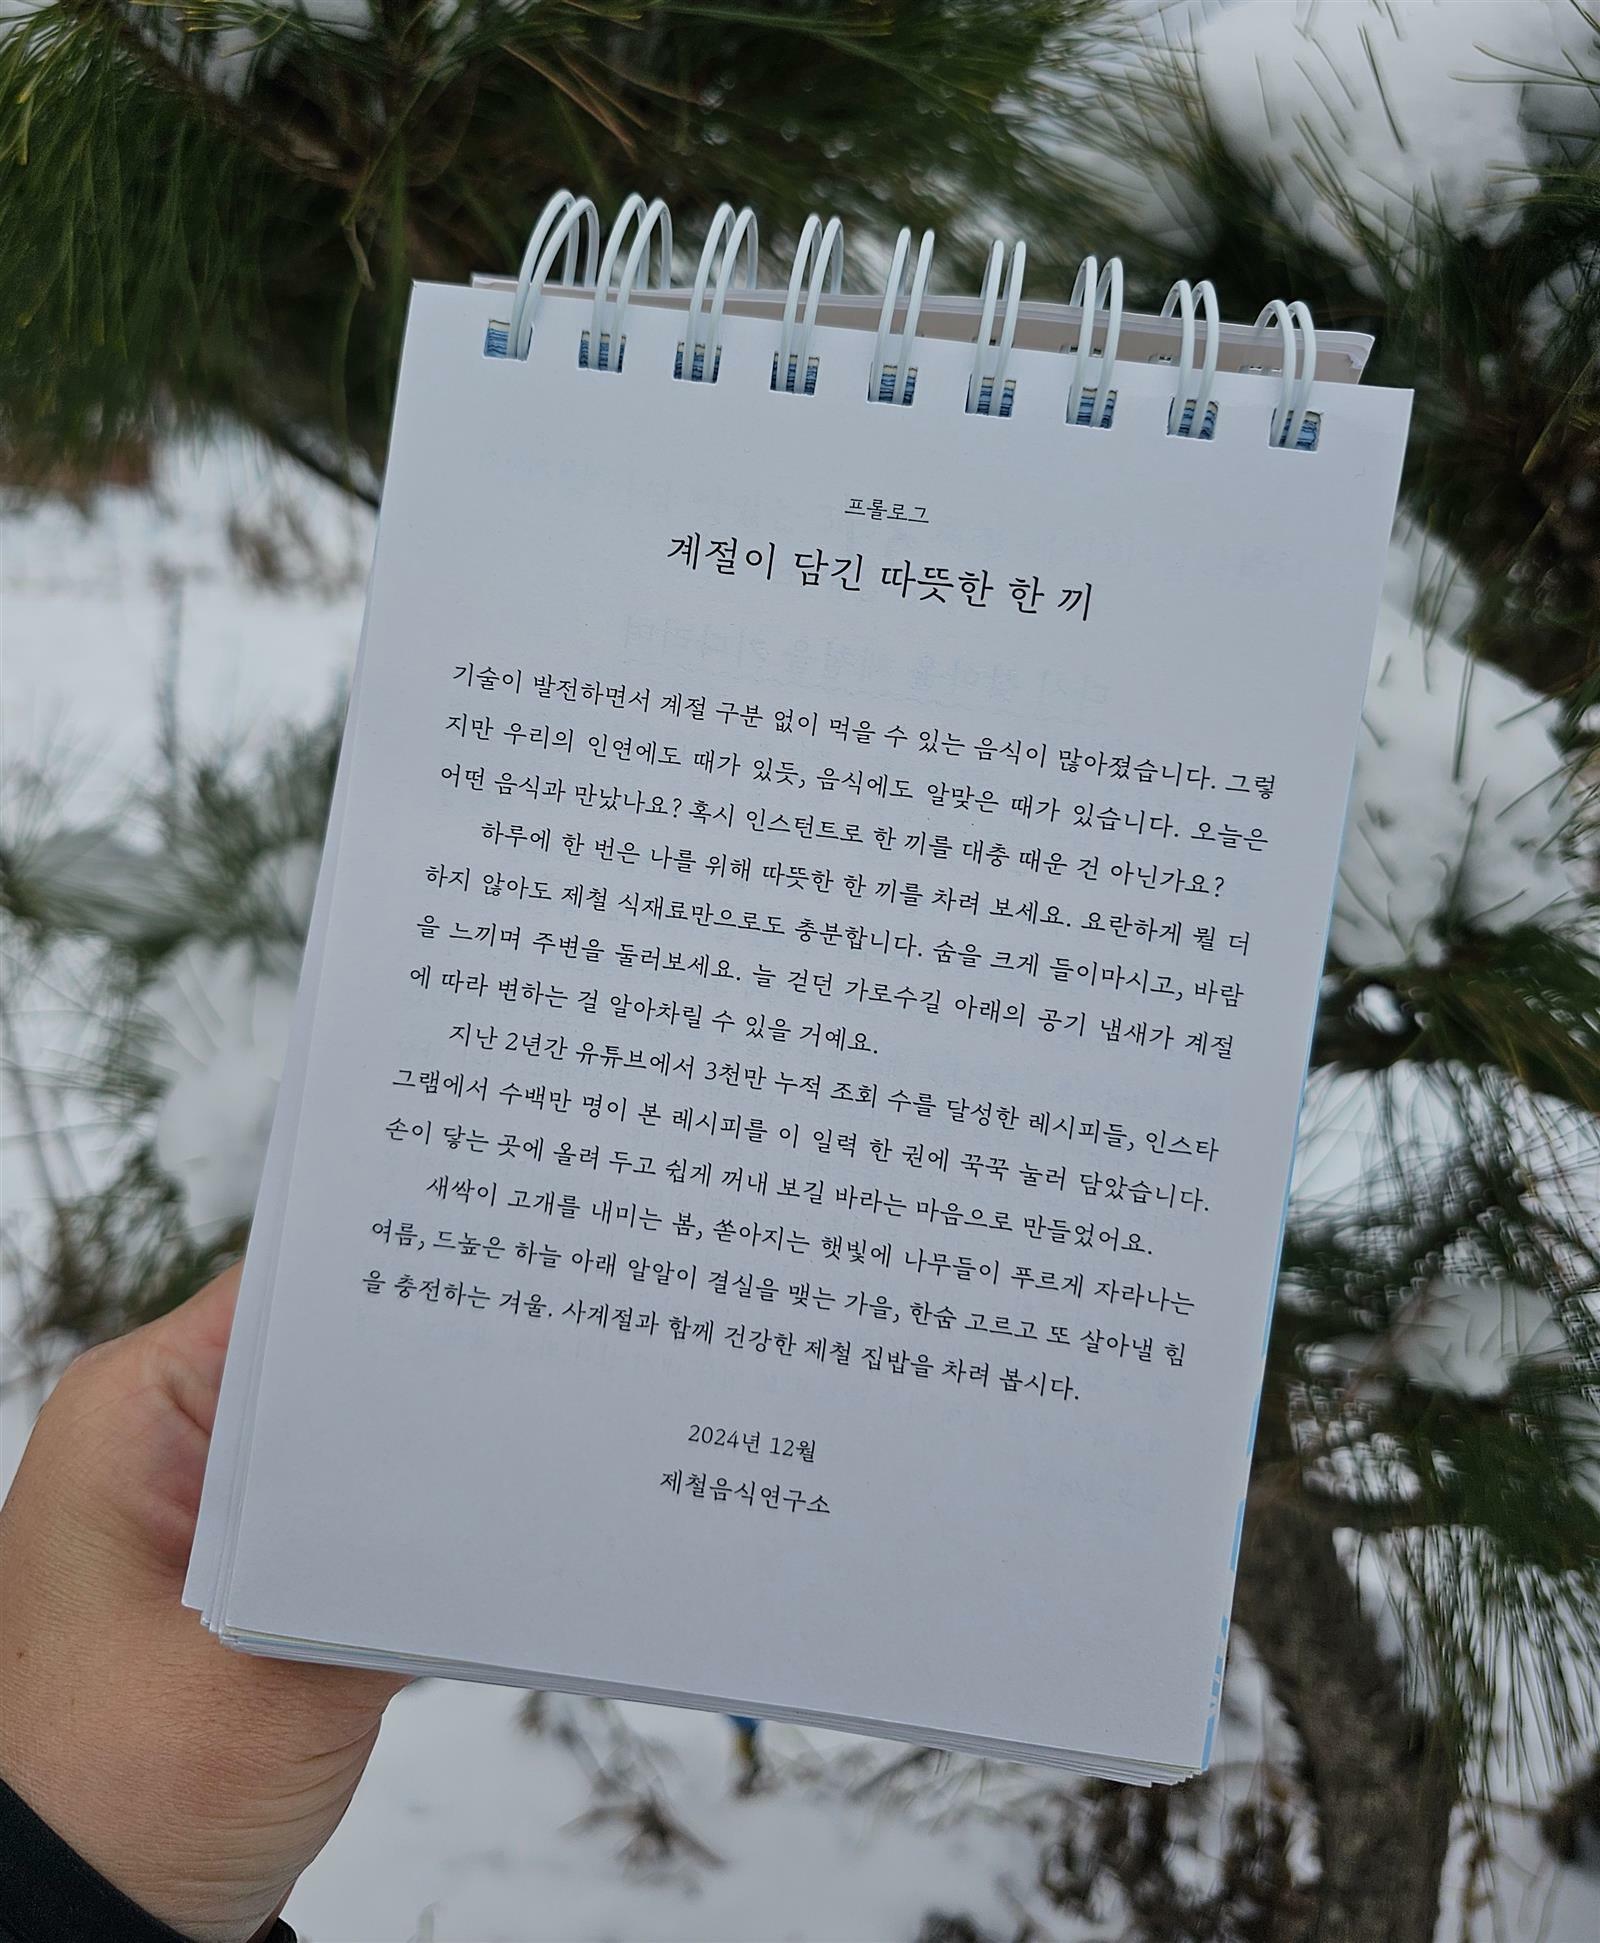 프롤로그
계절이 담긴 따뜻한 한 끼
기술이 발전하면서 계절 구분 없이 먹을 수 있는 음식이 많아졌습니다. 그렇
지만 우리의 인연에도 때가 있듯, 음식에도 알맞은 때가 있습니다. 오늘은
어떤 음식과 만났나요? 혹시 인스턴트로 한 끼를 대충 때운 건 아닌가요?
하루에 한 번은 나를 위해 따뜻한 한 끼를 차려 보세요. 요란하게 뭘 더
하지 않아도 제철 식재료만으로도 충분합니다. 숨을 크게 들이마시고, 바람
을 느끼며 주변을 둘러보세요. 늘 걷던 가로수길 아래의 공기 냄새가 계절
에 따라 변하는 걸 알아차릴 수 있을 거예요.
지난 2년간 유튜브에서 3천만 누적 조회 수를 달성한 레시피들, 인스타
그램에서 수백만 명이 본 레시피를 이 일력 한 권에 꾹꾹 눌러 담았습니다.
손이 닿는 곳에 올려 두고 쉽게 꺼내 보길 바라는 마음으로 만들었어요.
새싹이 고개를 내미는 봄, 쏟아지는 햇빛에 나무들이 푸르게 자라나는
여름, 드높은 하늘 아래 알알이 결실을 맺는 가을, 한숨 고르고 또 살아낼 힘
을 충전하는 겨울. 사계절과 함께 건강한 제철 집밥을 차려 봅시다.
2024년 12월
제철음식연구소